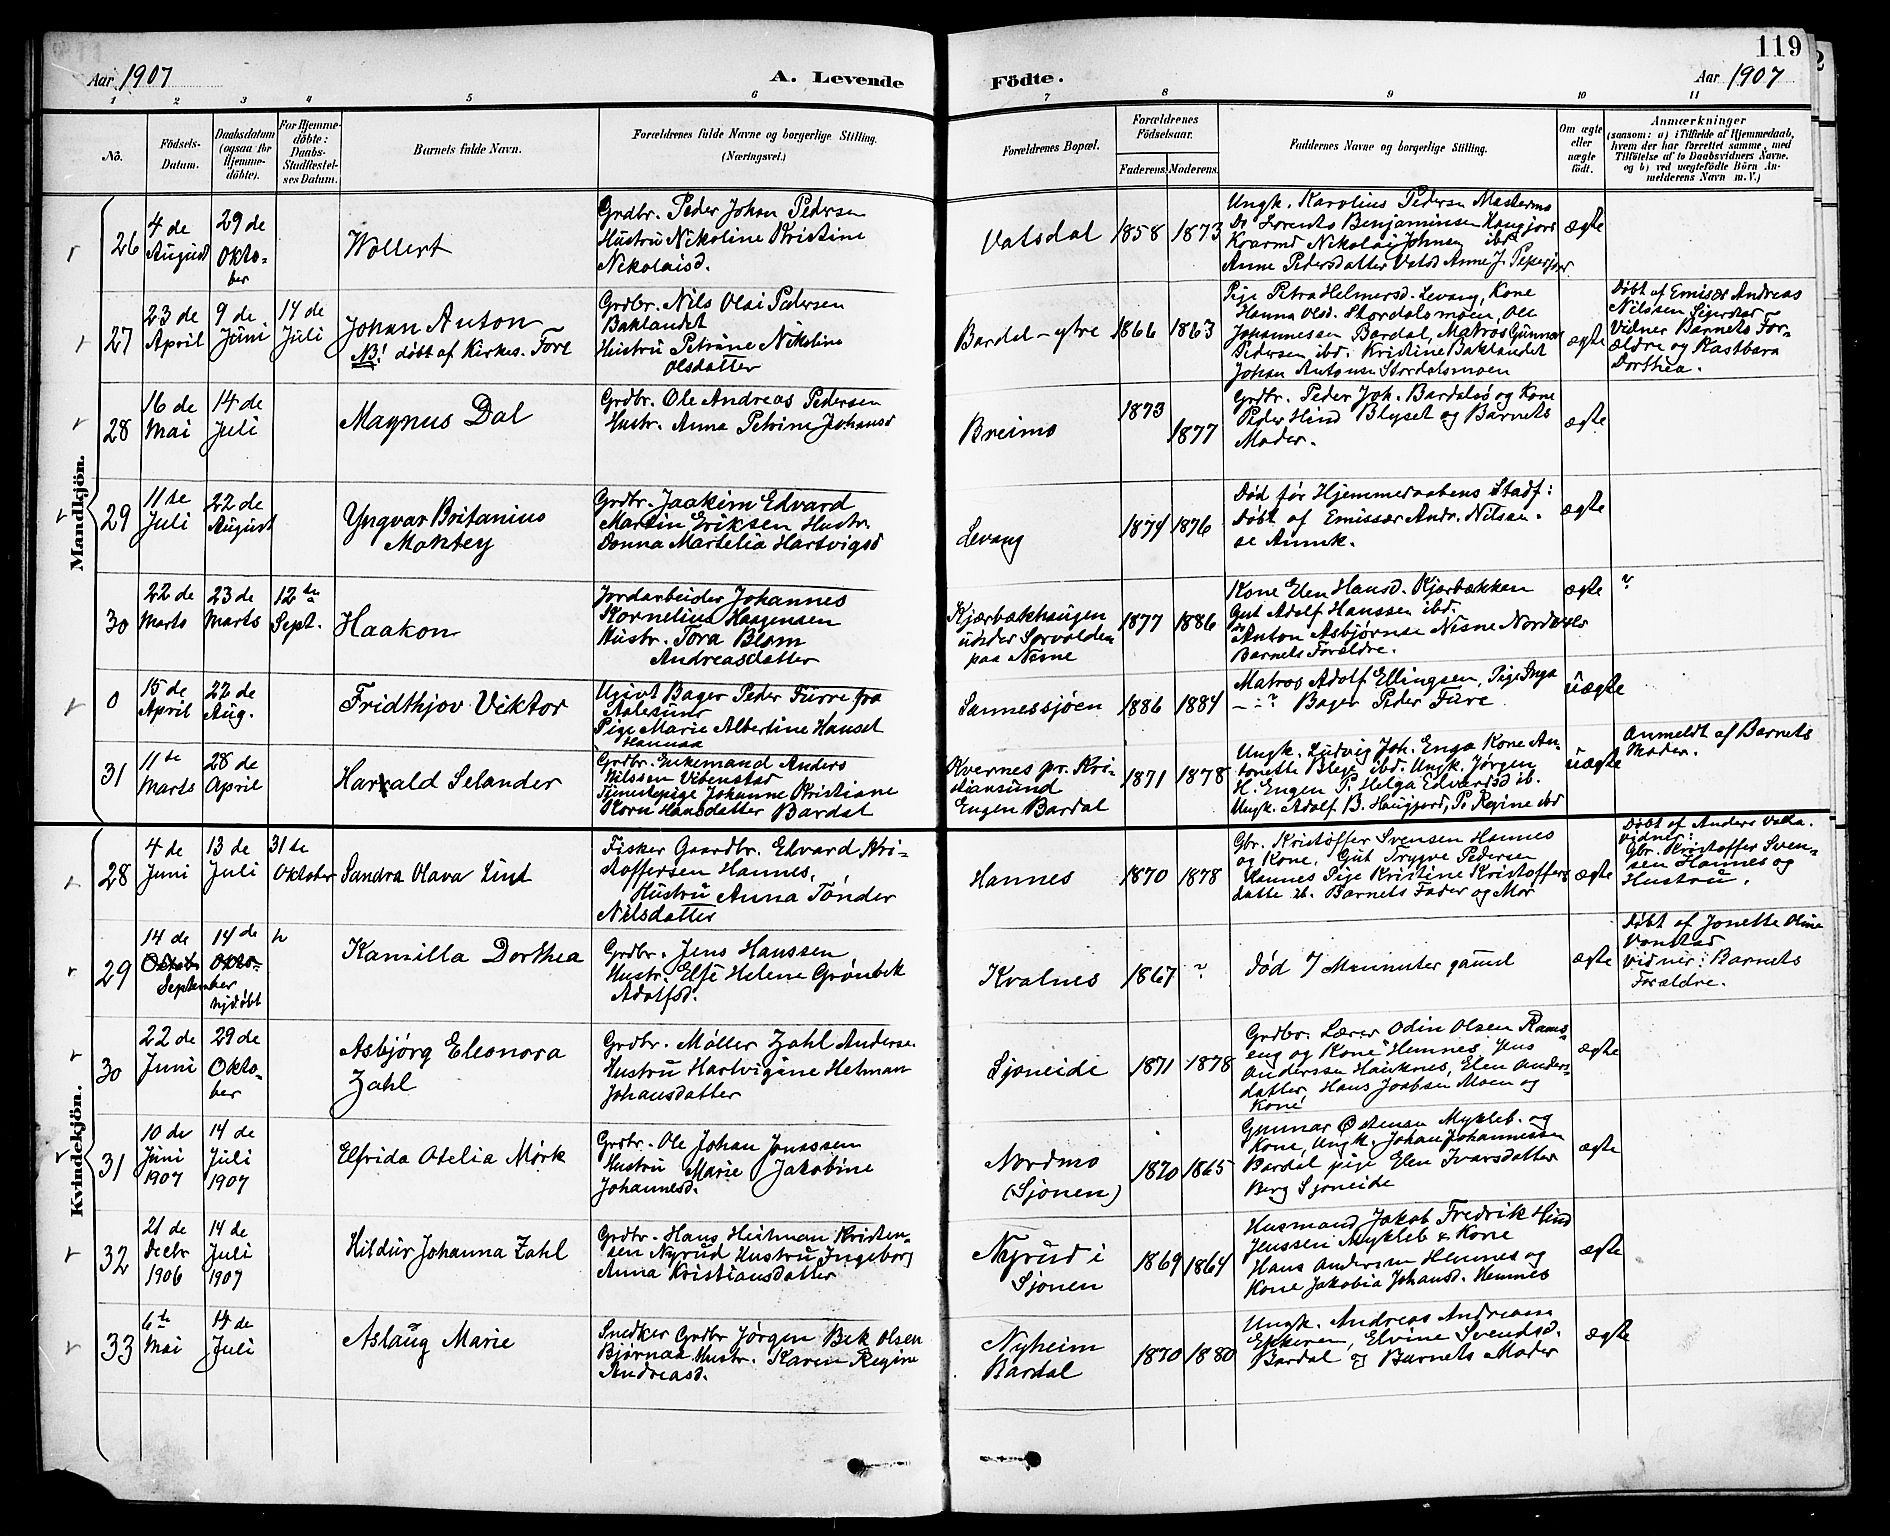 119
Aar 1907
A. Levende
Födte.
Aar 1907
1 2 3 4 5 6 7 8 9 10 11
Nô.
Födsels-Datum.
Daabsdatum (ogsaa for Hjemme-döbte).
For Hjemme-döbte: Daabs-Stadfestel-ses Datum.
Barnets fulde Navn.
Forældrenes fulde Navne og borgerlige Stilling. (Næringsvei.)
Forældrenes Bopæl.
Forældrenes Födselsaar.
Faderens. Moderens.
Faddernes Navne og borgerlige Stilling.
Om ægte eller uægte födt.
Anmærkninger
(saasom: a) i Tilfælde af Hjemmedaab, hvem der har forrettet samme, med Tilföielse af to Daabsvidners Navne. og b) ved uegtefödte Börn An-melderens Navn m. V.)
Mandkjön.
26
4 de August
29 de Okto-ber
Wollert
Grdbr. Peder Johan Pedersen
Hustru Nikoline Kristine
Nikolaisd.
Vatsdal
1858 1873
Ungk. Karolius Pedersen Mastermo
Do Lorents Benjaminsen Haugjord
Kvarmd Nikolai Johnsen ibd
Anne Pedersdatter Vatsd Anne J.
ægte
27
23 de April
9 de Juni
14 de Juli
Johan Anton
NB! döbt af Kirkes. Fore
Grdbr. Nils Olai Pedersen
Baklandet
Hustru Petrine Nikoline
Olsdatter
Bardal-ytre
1866 1863
Pige Petra Helmersd. Levang, Kone
Hanna Olsd. Stordalsmoen, Ole
Johannessen Bardal, Matros Gunnar
Pedersen ibd. Kristine Baklandet
Johan Antonsen Stordalsmoen
ægte
Döbt af Emisær Andreas
Nilssen
Vidner Barnets For-
ældre og
Dorthea.
28
16 de Mai
14 de Juli
Magnus Dal
Grdbr. Ole Andreas Pedersen
Hustr. Anna Petrine Johansd
Breimo
1873 1877
Grdbr. Peder Joh. Bardalsø og Kone
Peder Hind Blyset og Barnets
Moder.
ægte
29
11 te Juli
22 de August
Yngvar Britanius
Montey
Grdbr. Joakim Edvard
Martin Eriksen Hustr.
Donna Martelia Hartvigsd
Levang
1874 1876
Død før Hjemmedaabens Stadf:
Døbt af Emissær Andr. Nilsen.
se Anmk.
ægte
30
22 de Marts
23 de Marts
12 te Sept.
Haakon
Jordarbeider Johannes
Kornelius Haagensen
Hustr. Tora Blom
Andreasdatter
Kjærbækhaugen
under Sørvolden
paa Nesne
1877 1886
Kone Elen Hansd. Kjærbækken
Gut Adolf Hanssen ibd.
Do Anton Asbjørnse Nesne
Barnets Forældre.
ægte
?
0
15 de April
22 de Aug.
Fridthjov Viktor
Ugivt Bager Peder Furre fra
Aalesund
Pige Marie Albertine Hansd
Sannessjøen
1886 1884
Matros Adolf Ellingsen, Pige Inga
–"–? Bager Peder Fure
uægte
31
11 te Marts
28 de April
Harald Selander
Grdbr. Enkemand Anders
Nilssen Vibenstad
Tjenestepige Johanne Kristiane
Korn Hansdatter Bardal
Kvernes pr. Kri-
stiansund
Engen Bardal
1871 1878
Ungk. Ludvig Joh. Enga Kone An-
tonette Bleje ibd. Ungk. Jörgen
H. Engen P. Helga Edvardsd ib.
Ungk. Adolf B. Haugjord, Pi Regine ibd
uægte
Anmeldt af Barnets
Moder.
Kvindekjön.
28
4 de Juni
13 de Juli
31 te Oktober
Sandra Olava Lind
Fisker Gaardbr. Edvard Kri-
stoffersen Hannes,
Hustru Anna Tönder
Nilsdatter
Hannes
1870 1878
Gbr. Kristoffer Svensen Hannes
og Kone. Gut Trygve Pedersen
Hannes Pige Kristine Kristoffers
datte ib. Barnets Fader og Mor
ægte
Døbt af Anders
Vidner:
Gbr. Kristoffer Sven-
sen Hannes og
Hustru.
29
14 de September
14 de Okto-ber hjdöbt
Kamilla Dorthea
Grdbr. Jens Hanssen
Hustr. Else Helene Grønbek
Adolfsd.
Kvalnes
1867 ?
død 7 Minnuter gaml
ægte
Døbt af Jonette Oline
Vonstad
Vidner: Barnets
Forældre.
30
22 de Juni
29 de Okto-ber
Asbjørg Eleonora
Zahl
Grdbr. Møller Zahl Anderse
Hustru Hartvigine Hetman
Johansdatter
Sjoneide
1871 1878
Grdbr. Lærer Odin Olsen Rams-
eng og Kone Hemnes, Jens
Anderssen Hauknes, Elen Anders-
datter, Hans Joabsen Moen og
Kone
ægte
31
10 de Juni 1907
14 de Juli 1907
Elfrida Otelia Mørk
Grdbr. Ole Johan Jonssen
Hustru Marie Jakobine
Johannesd.
Nordmo
(Sjonen)
1870 1865
Gunnar Østensen Mykleb. og
Kone, Ungk. Johan Johannessen
Bardal pige Elen Ivarsdatter
Berg Sjoneide
ægte
32
21 de Decbr 1906
14 de Juli 1907
Hildur Johanna Zahl
Grdbr. Hans Heitman Kristen-
sen Nyrud Hustru Ingeborg
Anna Kristiansdatter
Nyrud i
Sjonen
1869 1864
Husmand Jakob Fredrik Hind
Jenssen Mykleb & Kone
Hans Andersen Hemnes og
Kone Jakobia Johansd. Hemnes
ægte
33
6 te Mai
14 de Juli
Aslaug Marie
Snedker Grdbr Jørgen Bek Olsen
Bjørnaa Hustr. Karen Regine
Andreasd.
Nyheim
Bardal
1870 1880
Ungk. Andreas Andreasse
Elvine Svendsd.
Bardal og Barnets Moder
ægte